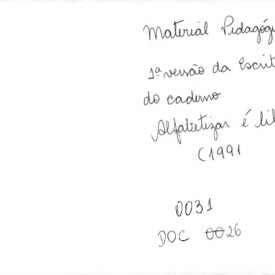 Material Pedagógi
1ª versão da Escrit
do caderno
Alfabetizar é lib
(1991
0031
DOC 0026